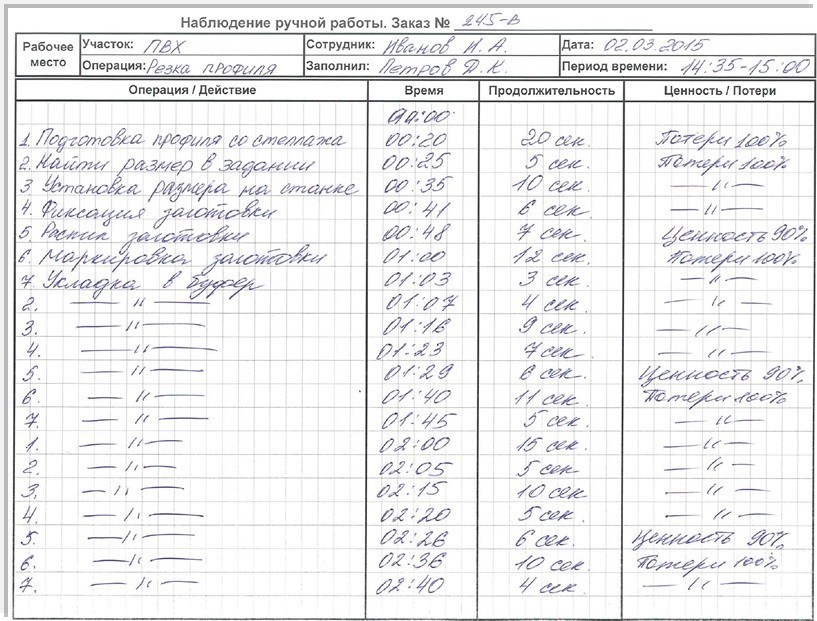 Наблюдение ручной работы. Заказ № 245-В
Рабочее место Участок: ПВХ Сотрудник: Иванов И. А. Дата: 02.03.2015
Операция: Резка профиля Заполнил: Петров Д. К. Период времени: 14:35-15:00
Операция / Действие Время Продолжительность Ценность / Потери
00:00
1. Подготовка профиля со стеллажа 00:20 20 сек. Потери 100%
2. Найти размер в задании 00:25 5 сек. Потери 100%
3. Установка размера на станке 00:35 10 сек — 〃 —
4. Фиксация заготовки 00:41 6 сек — 〃 —
5. Распил заготовки 00:48 7 сек. Ценность 90%
6. Маркировка заготовки 01:00 12 сек. Потери 100%
7. Укладка в буфер 01:03 3 сек. — 〃 —
2. — 〃 — 01:07 4 сек. — 〃 —
3. — 〃 — 01:16 9 сек. — 〃 —
4. — 〃 — 01:23 7 сек. — 〃 —
5. — 〃 — 01:29 6 сек. Ценность 90%
6. — 〃 — 01:40 11 сек. Потери 100%
7. — 〃 — 01:45 5 сек. — 〃 —
1. — 〃 — 02:00 15 сек. — 〃 —
2. — 〃 — 02:05 5 сек — 〃 —
3. — 〃 — 02:15 10 сек — 〃 —
4. — 〃 — 02:20 5 сек. — 〃 —
5. — 〃 — 02:26 6 сек. Ценность 90%
6. — 〃 — 02:36 10 сек Потери 100%
7. — 〃 — 02:40 4 сек. — 〃 —